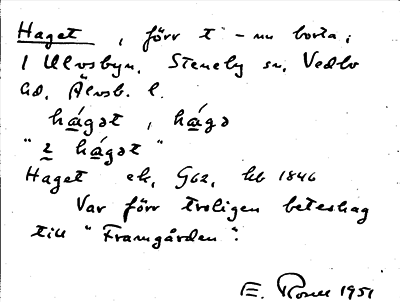 Haget, förr t - nu borta;
1 Ulvsbyn, Steneby sn, Vedbo
hd, Älvsb. l.
hágət, hágə
"2 hágət"
Haget ek, G62, hb 1846
Var förr troligen beteshag
till "Framgården".
E. 1951